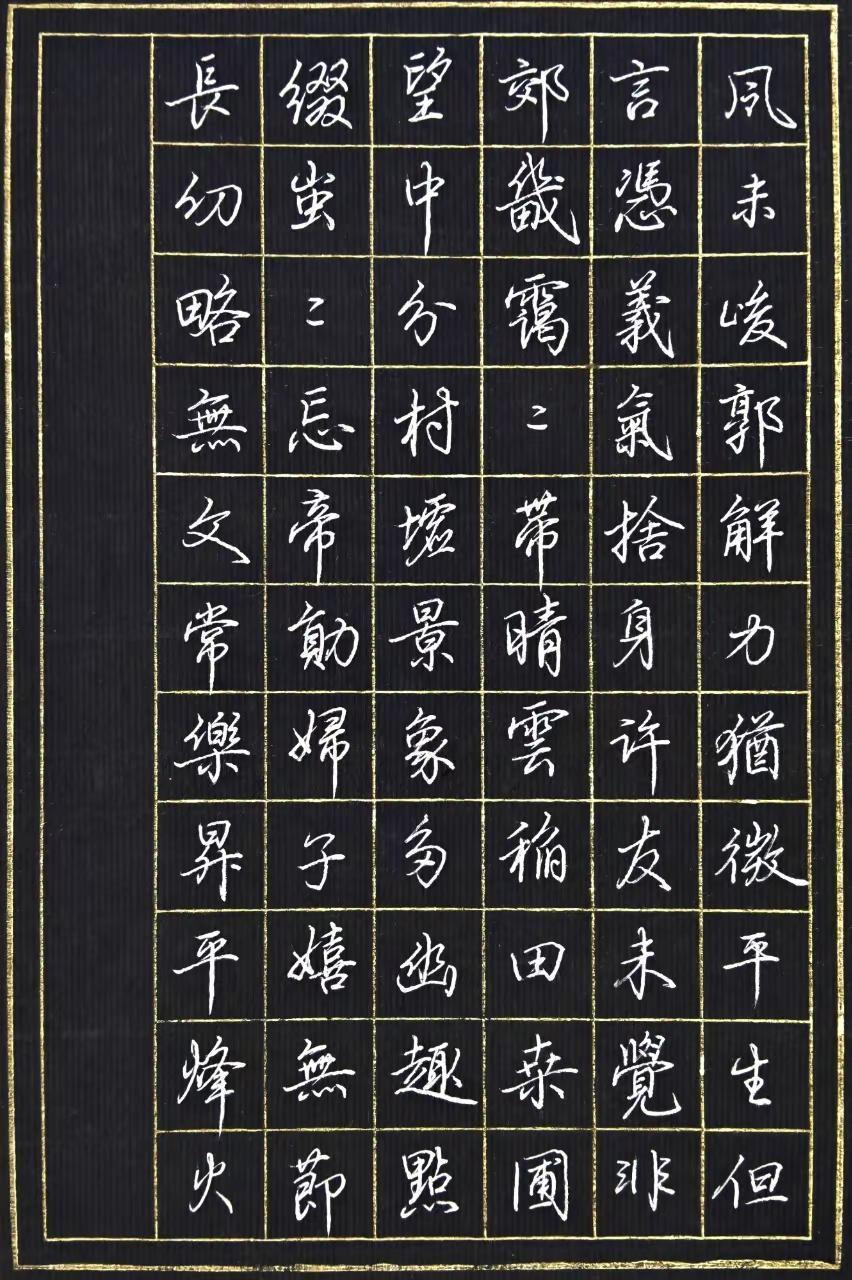 風未峻郭解力猶微平生但
言憑義氣捨身許友未覺非
郊畿靄〻帶晴雲稻田桒圃
望中分村墟景象多幽趣點
綴蚩〻忘帝勛婦子嬉無節
長幼略無文常樂昇平烽火